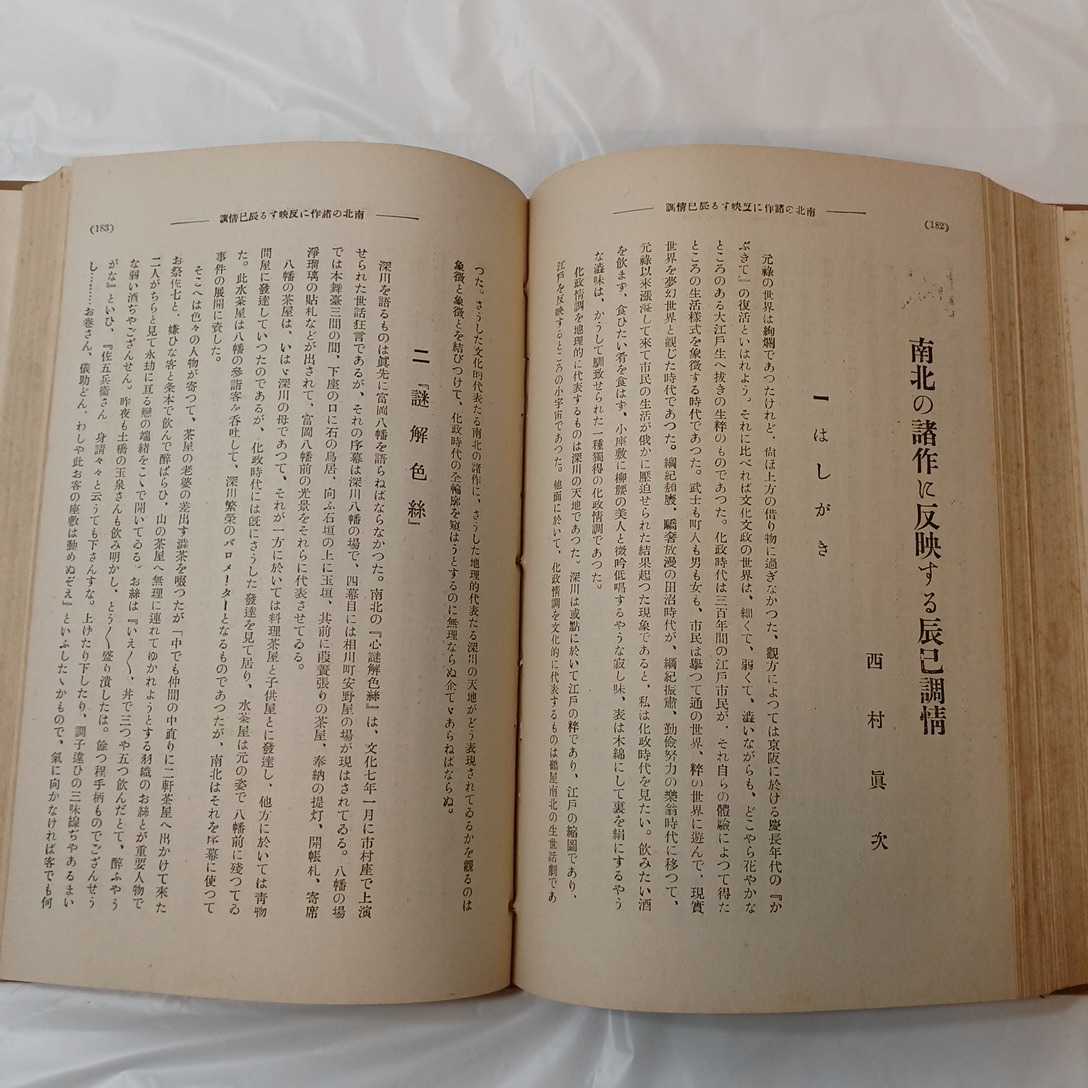 (182)
南北の諸作に反映する辰巳情調
南北の諸作に反映する辰巳調情
西村眞次
一 はしがき
元祿の世界は絢爛であつたけれど、尙ほ上方の借り物に過ぎなかつた、觀方によつては京阪に於ける慶長年代の『か
ぶきて』の復活といはれよう。それに比べれば文化文政の世界は、細くて、弱くて、澁いながらも、どこやら花やかな
ところのある大江戸生へ拔きの生粹のものであつた。化政時代は三百年間の江戸市民が、それ自らの體驗によつて得た
ところの生活樣式を象徵する時代であつた。武士も町人も男も女も、市民は擧つて通の世界、粹の世界に遊んで、現實
世界を夢幻世界と觀じた時代であつた。綱紀頽廢、驕奢放漫の田沼時代が、綱紀振肅、勤儉努力の樂翁時代に移つて、
元祿以來漲溢して來て市民の生活が俄かに壓迫せられた結果起つた現象であると、私は化政時代を見たい。飮みたい酒
を飮まず、食ひたい肴を食はず、小座敷に柳腰の美人と微吟低唱するやうな寂し味、表は木綿にして裏を絹にするやう
な澁味は、かうして馴致せられた一種獨得の化政情調であつた。
化政情調を地理的に代表するものは深川の天地であつた。深川は或點に於いて江戸の粹であり、江戸の縮圖であり、
江戸を反映するところの小宇宙であつた。他面に於いて、化政情調を文化的に代表するものは鶴屋南北の生世話劇であ
(183)
南北の諸作に反映する辰巳情調
つた。さうした文化的代表たる南北の諸作に、さうした地理的代表たる深川の天地がどう表現されてゐるかを觀るのは
象徵と象徵とを結びつけて、化政時代の全輪廓を窺はうとするのに無理ならぬ企てゞあらねばならぬ。
二 『謎解色絲』
深川を語るものは眞先に富岡八幡を語らねばならなかつた。南北の『心謎解色絲』は、文化七年一月に市村座で上演
せられた世話狂言であるが、それの序幕は深川八幡の場で、四幕目には相川町安野屋の場が現はされてゐる。八幡の場
では本舞臺三間の間、下座の口に石の鳥居、向ふ石垣の上に玉垣、其前に葭簀張りの茶屋、奉納の提灯、開帳札、寄席
淨瑠璃の貼札などが出されて、富岡八幡前の光景をそれらに代表させてゐる。
八幡の茶屋は、いはゞ深川の母であつて、それが一方に於いては料理茶屋と子供屋とに發達し、他方に於いては靑物
問屋に發達していつたのであるが、化政時代には旣にさうした發達を見て居り、水茶屋は元の姿で八幡前に殘つてゐ
た。此水茶屋は八幡の參詣客を呑吐して、深川繁榮のバロメーターとなるものであつたが、南北はそれを序幕に使つて
事件の展開に資した。
そこへは色々の人物が寄つて、茶屋の老婆の差出す澁茶を啜つたが「中でも仲間の中直りに二軒茶屋へ出かけて來た
お祭佐七と、嫌ひな客と粂本で飮んで醉ばらひ、山の茶屋へ無理に連れてゆかれようとする羽織のお絲とが重要人物で
二人がちらと見て永劫に亘る戀の端緖をこゝで開いてゐる。お絲は『いえ〳〵、丼で三つや五つ飮んだとて、醉ふやう
な弱い酒ぢやござんせん。昨夜も土橋の玉泉さんも飮み明かし、とう〳〵盛り潰したは。餘つ程手柄ものでござんせう
がな』と言ひ、『佐五兵衞さん 身請々々と云うても下さんすな。上けたり下したり、調子違ひの三味線ぢやあるまい
し………お卷さん、儀助どん。わしや此お客の座敷は勤めぬぞえ』といふしたゝかもので、氣に向かなければ客でも何